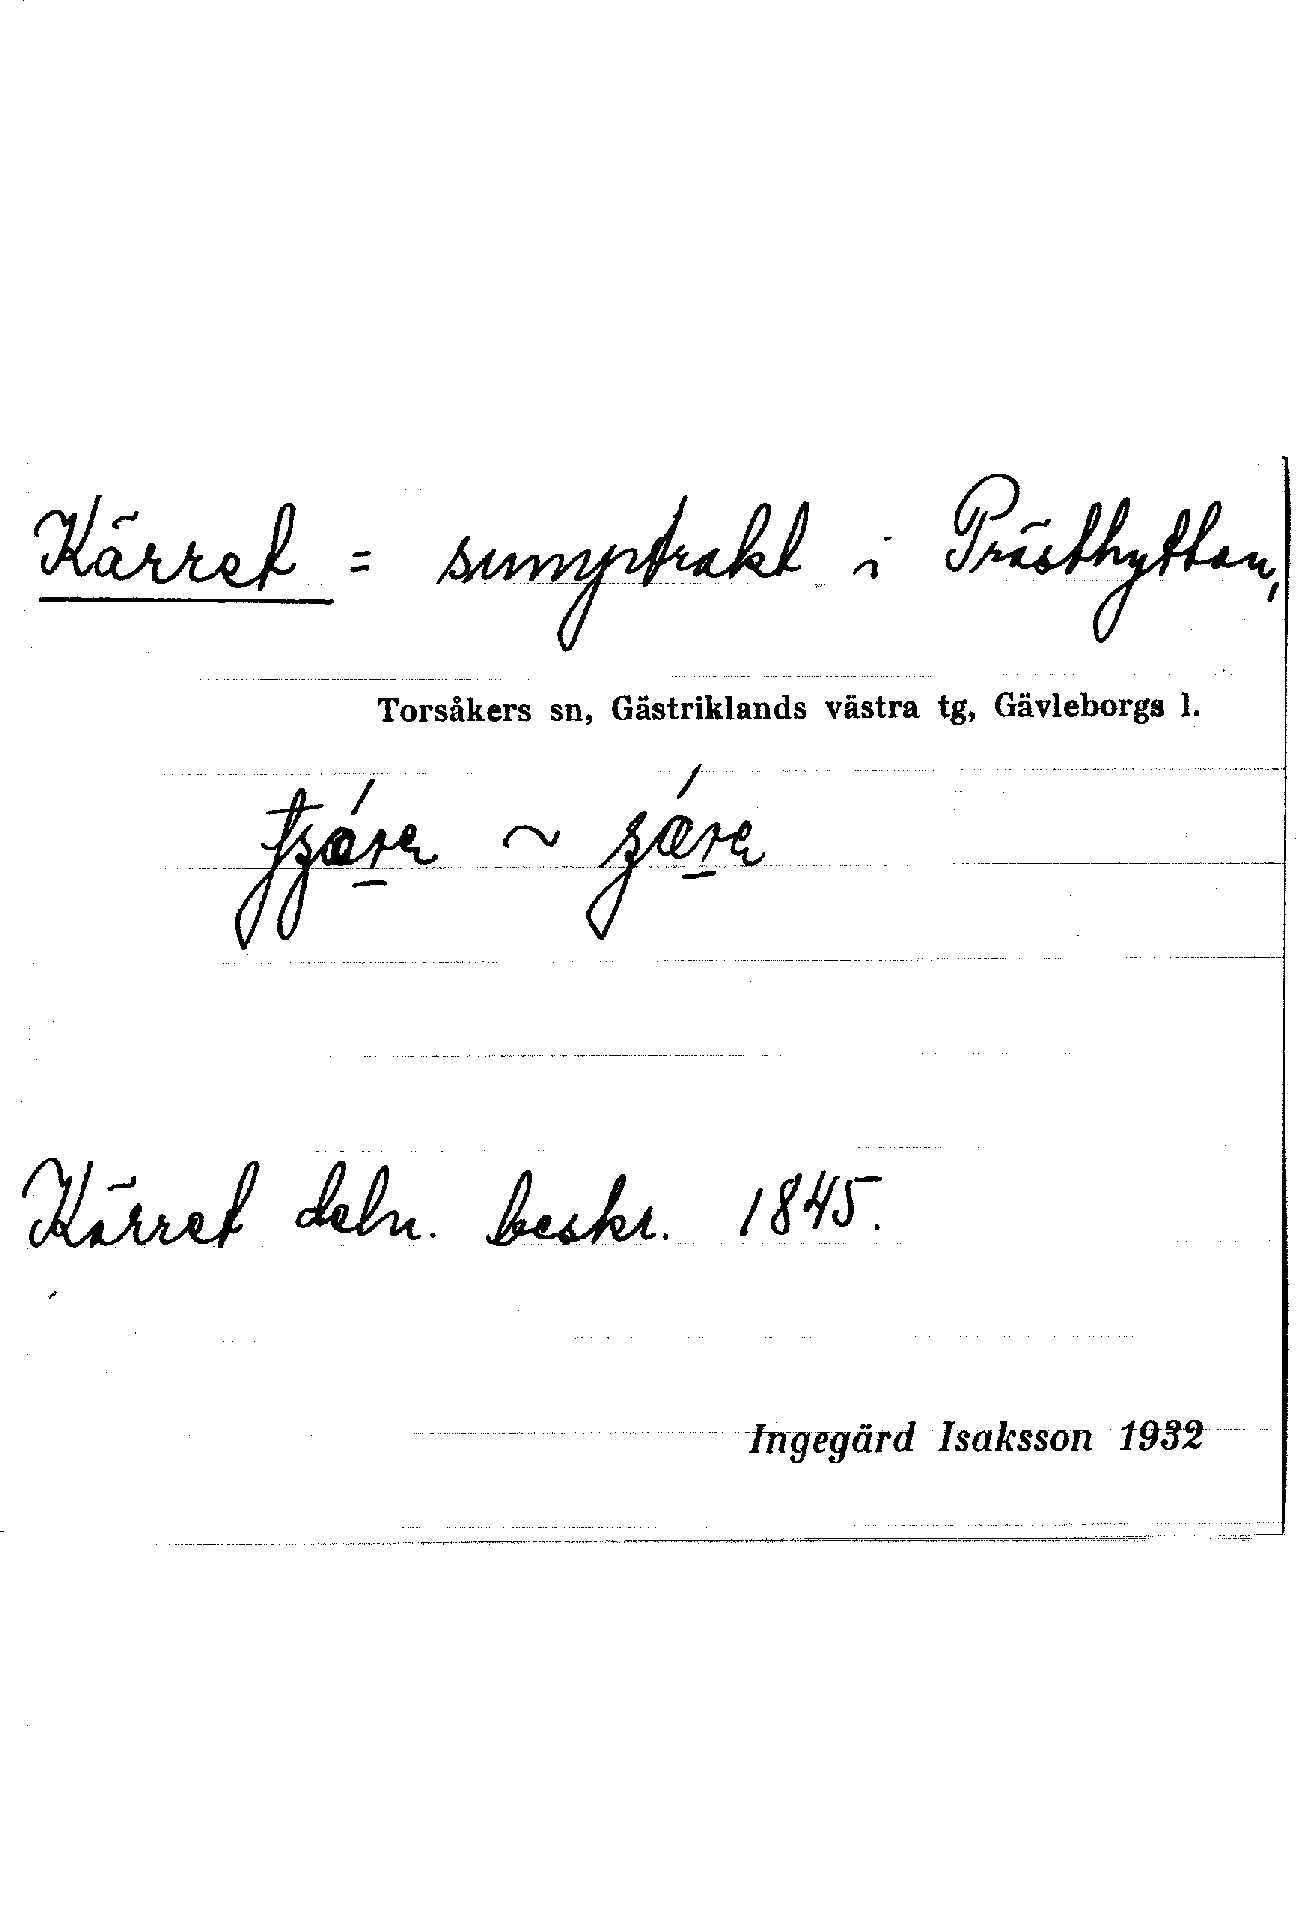 Kärret = sumptrakt i Prästhyttan,
Torsåkers sn, Gästriklands västra tg, Gävleborgs l.
~
Kärret deln. beskr. 1845.
Ingegärd Isaksson 1932